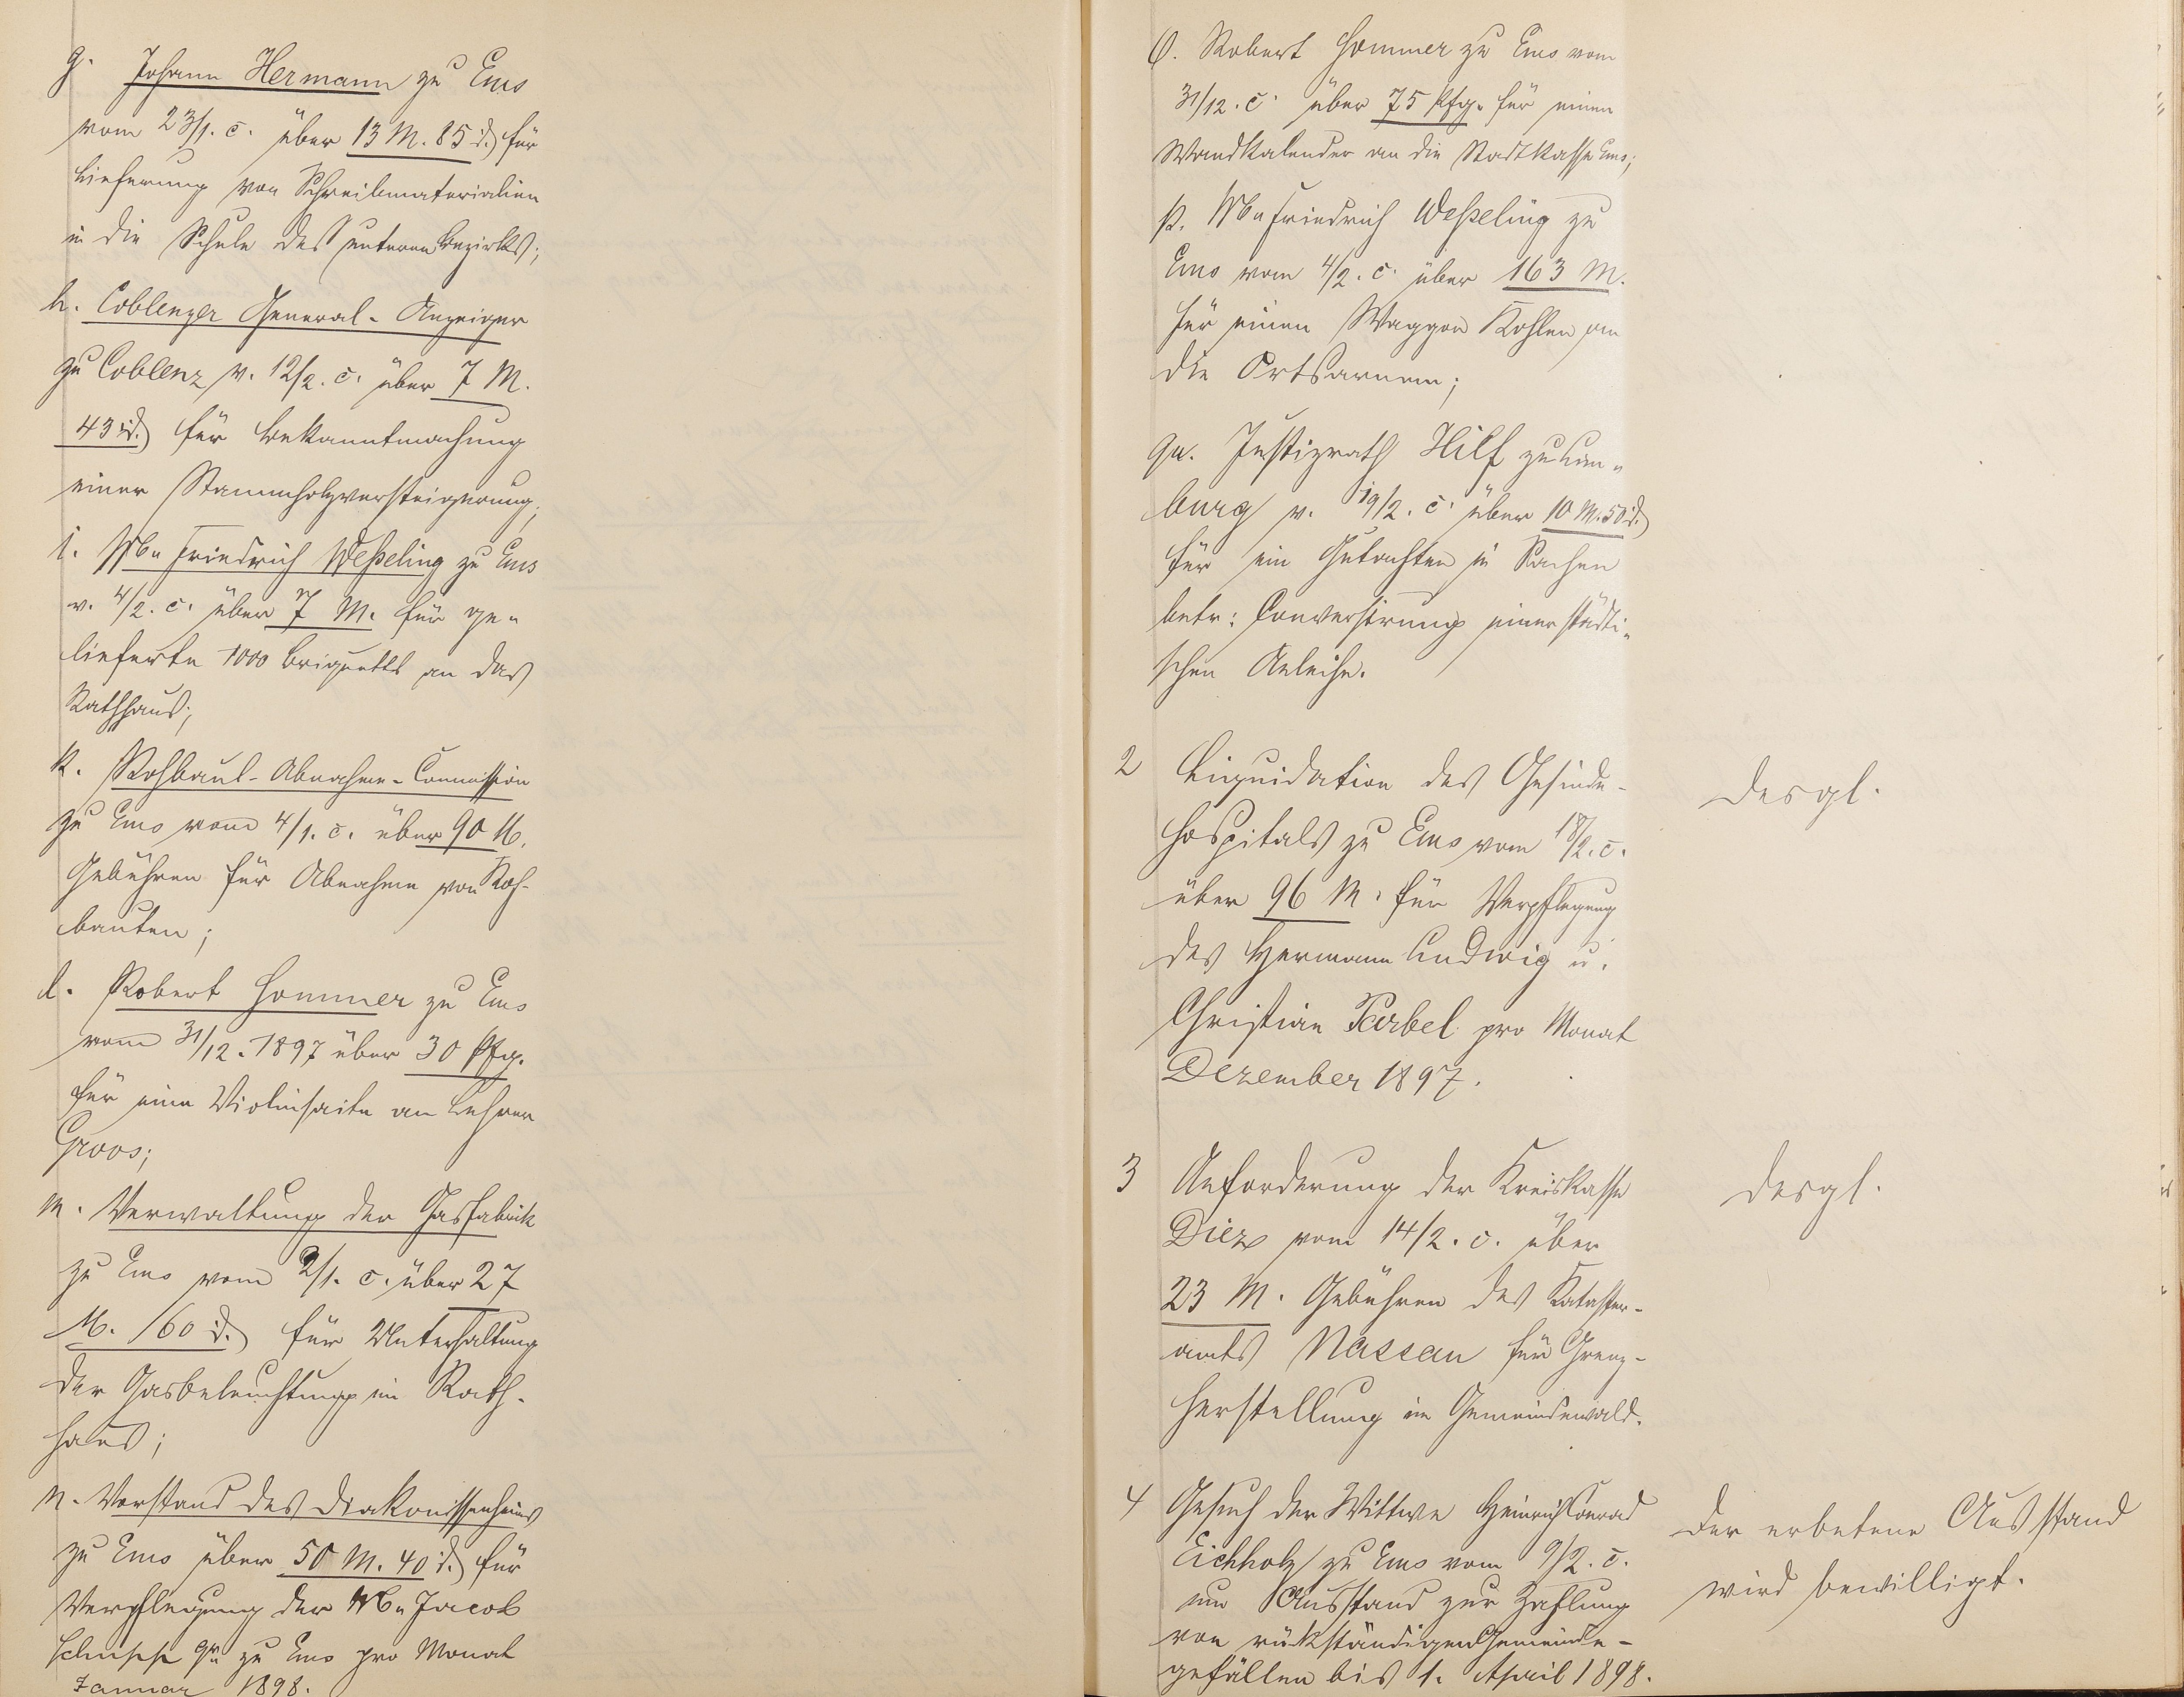 g. Johann Hermann zu Ems
vom 23/1. c. über 13 M. 85 d. für
Lieferung von Schreibmaterialien
in die Schule des unteren Bezirks;
h. Coblenzer General-Anzeiger
zu Coblenz v. 12/2. c. über 7 M.
43 d. für Bekanntmachung
einer Stammholzversteigerung;
i. Ww. Friedrich Weßeling zu Ems
v. 4/2. c. über 7 M. für ge-
lieferte 1000 Briquetts an das
Rathhaus;
k. Rohbau-Abnahme-Commission
zu Ems vom 4/1. c. über 90 M.
Gebühren für Abnahme von Roh-
bauten;
l. Robert Hommer zu Ems
vom 31/12. 1897 über 30 Pfg.
für eine Violinsaite an Lehrer
Groos;
m. Verwaltung der Gasfabrik
zu Ems vom 2/1. c. über 27
M. 60 d. für Unterhaltung
der Gasbeleuchtung im Rath-
haus;
n. Vorstand des Diakonissenheims
zu Ems über 50 M. 40 d. für
Verpflegung der Ww. Jacob
zu Ems pro Monat
Januar 1898.
o. Robert Hommer zu Ems vom
31/12. c. über 75 Pfg. für einen
Wandkalender an die Stadtkasse Ems;
p. Ww. Friedrich Weßeling zu
Ems vom 4/2. c. über 163 M.
für einen Waggon Kohlen an
die Ortsarmen;
qu. Justizrath Hilf zu Lim-
burg v. 19/2. c. über 10 M. 50 d.
für ein Gutachten in Sachen
betr: Convertirung einer städti-
schen Anleihe.
2 Liquidation des Gesinde-
hospitals zu Ems vom 18/2. c.
über 96 M. für Verpflegung
des Hermann Ludwig u.
Christian Pärbel pro Monat
Dezember 1897.
desgl.
3 Anforderung der Kreiskasse
Diez vom 14/2. c. über
23 M. Gebühren des Kataster-
amts Nassau für Grenz-
herstellung im Gemeindewald.
desgl.
4 Gesuch der Wittwe Heinrich Conrad
Eichholz zu Ems vom 9/2. c.
um Ausstand zur Zahlung
von rükständigen Gemeinde-
gefällen bis 1. April 1898.
Der erbetene Ausstand
wird bewilligt.